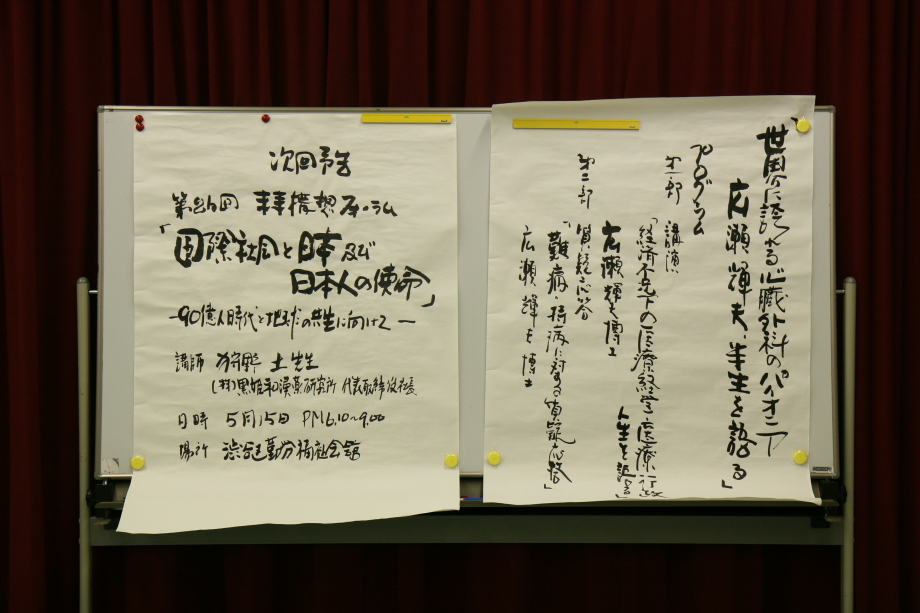 次回予告
第86回 未来構想フォーラム
「国際社会と日本及び
日本人の使命」
―90億人時代と地球の共生に向けて―
講師 狩野 土先生
(株)黒姫和漢薬研究所 代表取締役社長
日時 5月15日 PM6:10~9:00
場所 渋谷勤労福祉会館
「世界に誇れる心臓外科のパイオニア
広瀬輝夫、半生を語る」
プログラム
第一部 講演
「経済不況下の医療経学・医療行政
人生を語る」
広瀬輝夫博士
第二部 質疑応答
「難病・持病に対する質疑応答」
広瀬輝夫博士